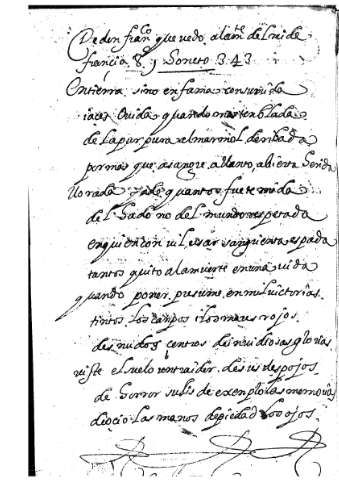 De don franco quevedo. a la mte del Rei de
francia 8. y Soneto 343
En tierra sino en fama consumida
iaces o vida quando mas temblada
de la purpura al marmol derribada
por mas que a sangre, a llanto, abierta herida
llorada quantos fuete mida
del hado no del mundo respetada
en quien con vil essar sangrienta espada
tantos quito a la muerte en una vida
quando poner presume en mil victorias
tintos los campos i los mares rojos
desnudos centros de invidiosas glorias
viste el suelo de sus despojos
de horror sulis de exemplo las memorias
de ocio las manos de piedad los ojos.